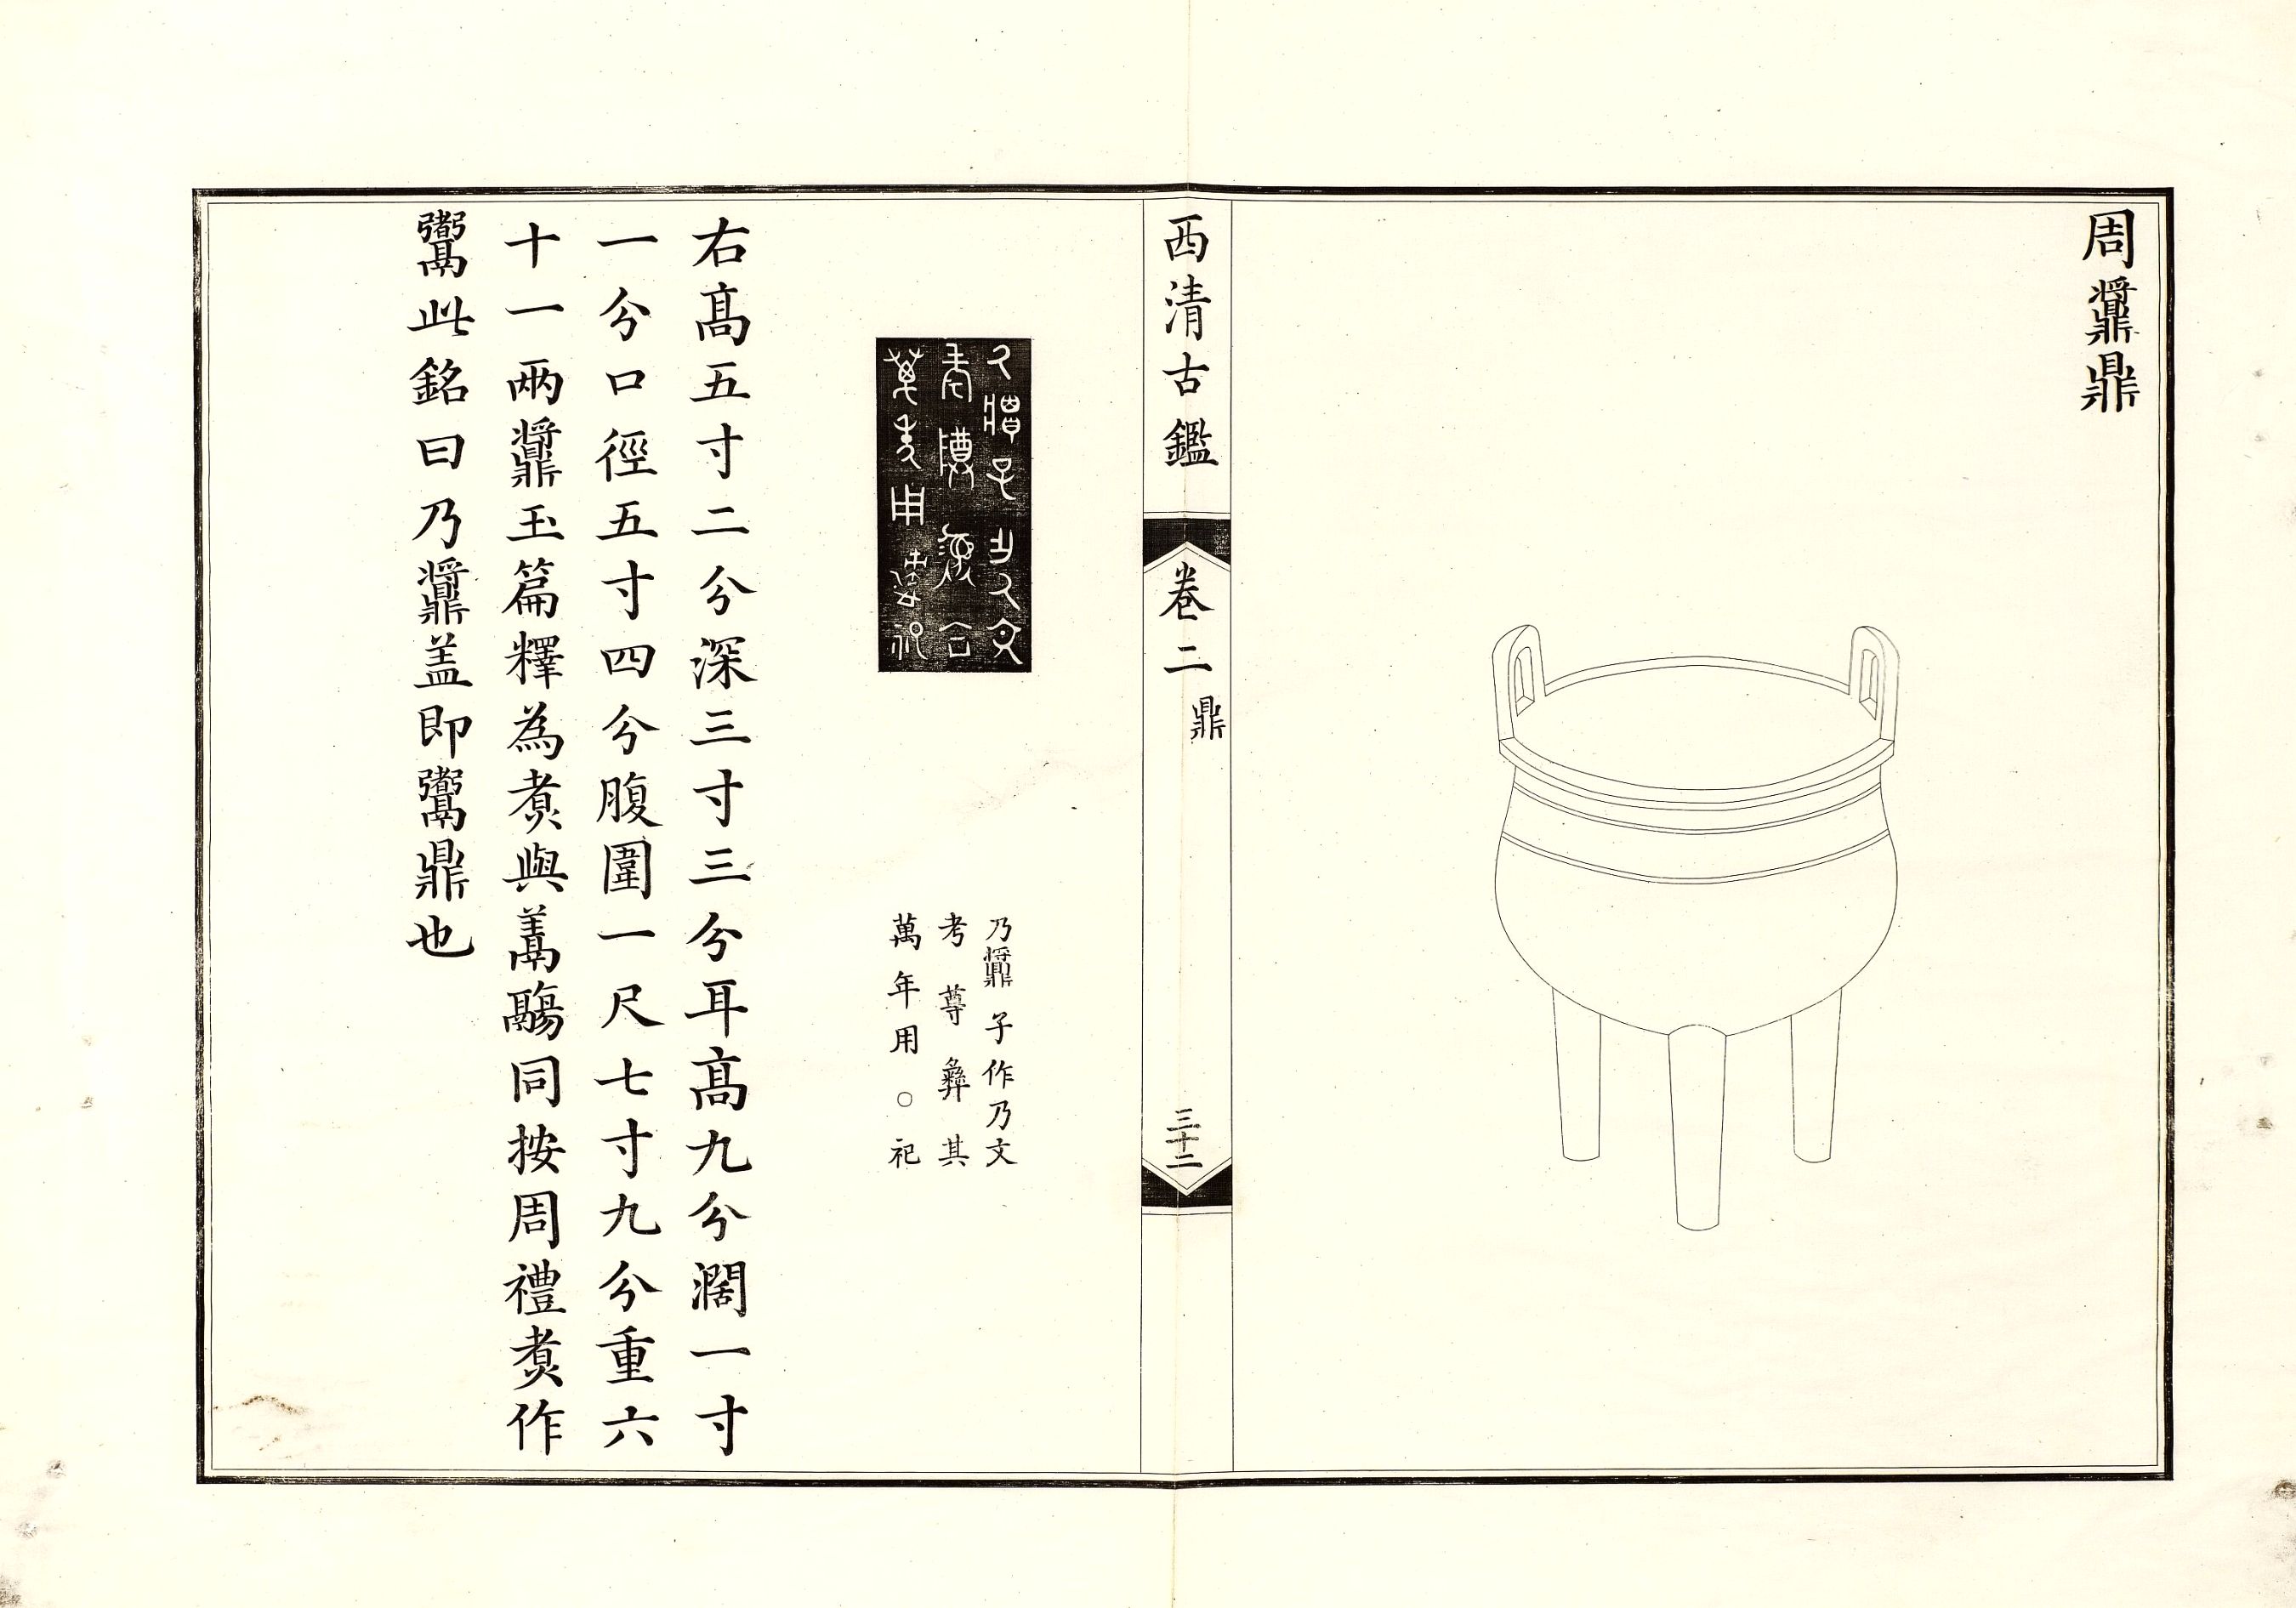 周䵼鼎
西清古鑑 卷二 鼎 三十二
乃䵼子作乃文
考尊彝其
萬年用○祀
右髙五寸二分深三寸三分耳髙九分濶一寸
一分口徑五寸四分腹圍一尺七寸九分重六
十一兩䵼玉篇釋為煑與鬺同按周禮煑作
䰞此銘曰乃䵼盖即䰞鼎也